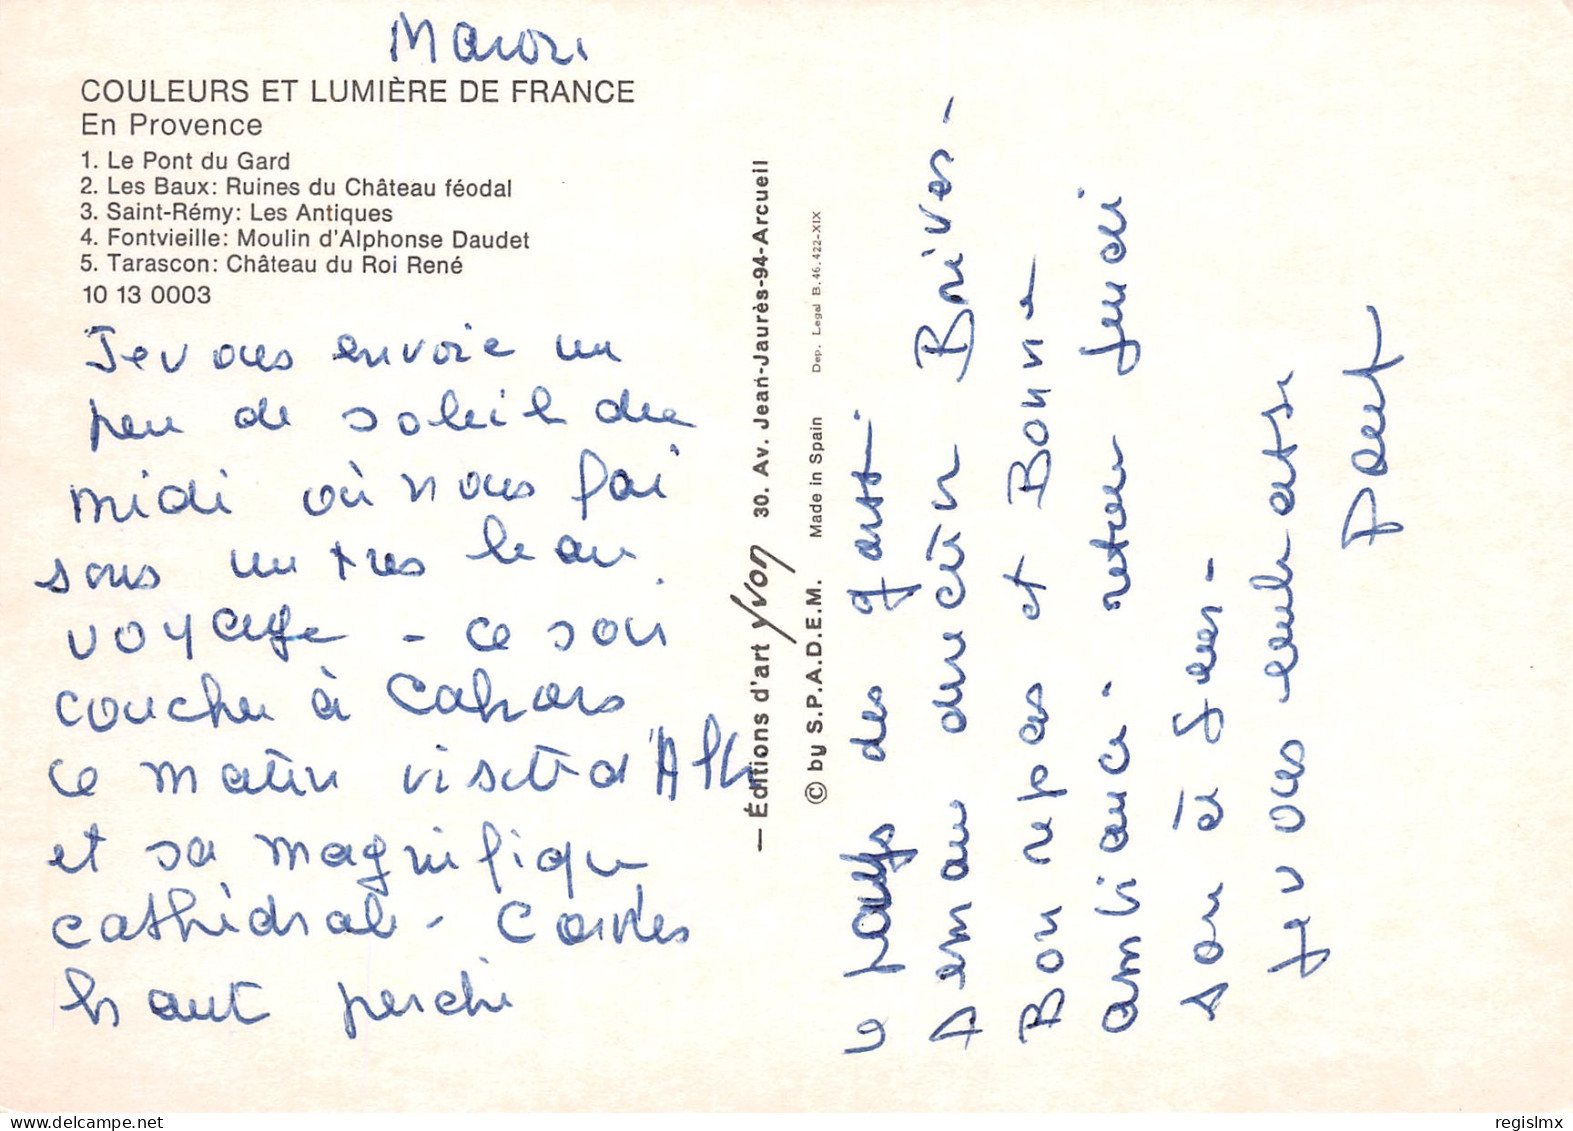 Mardi
COULEURS ET LUMIÈRE DE FRANCE
En Provence
1. Le Pont du Gard
2. Les Baux: Ruines du Château féodal
3. Saint-Rémy: Les Antiques
4. Fontvieille: Moulin d'Alphonse Daudet
5. Tarascon: Château du Roi René
10 13 0003
Je vous envoie un
peu de soleil du
midi où nous fai
sons un tres beau
voyage - ce soir
coucher à Cahors
ce matin visite d'Alb
et sa magnifique
cathédrale - Cordes
haut perché
— Éditions d'art Yvon 30. Av. Jean-Jaurès-94-Arcueil
© by S.P.A.D.E.M. Made in Spain Dep. Legal B. 46.422-XIX
le pays des
Demain matin Brives -
Bon repas et Bonne
ambiance. retour jeudi
soir à
Je vous embrasse
regislmx